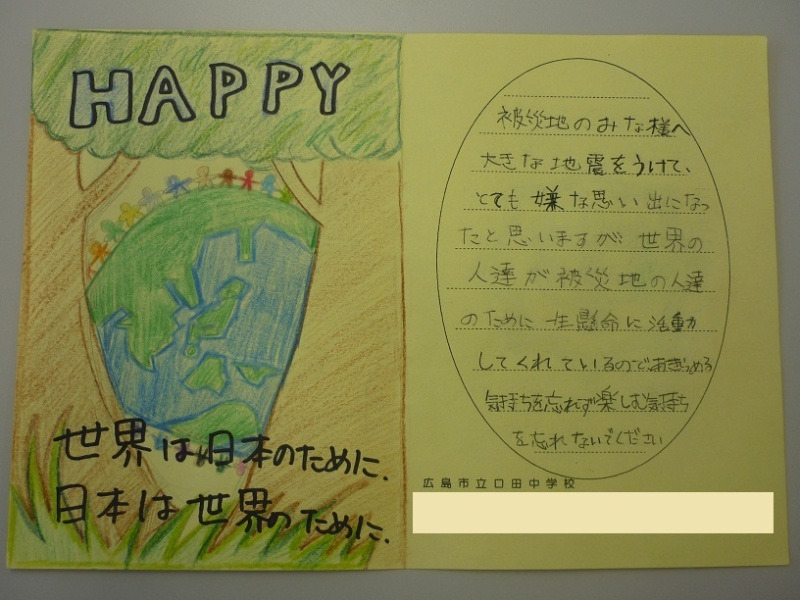 HAPPY
世界は日本のために.
日本は世界のために.
被災地のみな様へ
大きな地震をうけて、
とても嫌な思い出になっ
たと思いますが、世界の
人達が被災地の人達
のために一生懸命に活動
してくれているので、あきらめる
気持ちを忘れず楽しむ気持ち
を忘れないでください
広島市立口田中学校